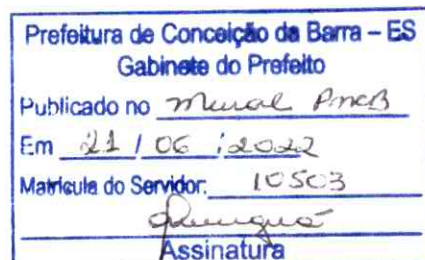 Prefeitura de Conceição da Barra – ES
Gabinete do Prefeito
Publicado no Mural PMCB
Em 21 / 06 / 2022
Matrícula do Servidor: 10503
Assinatura